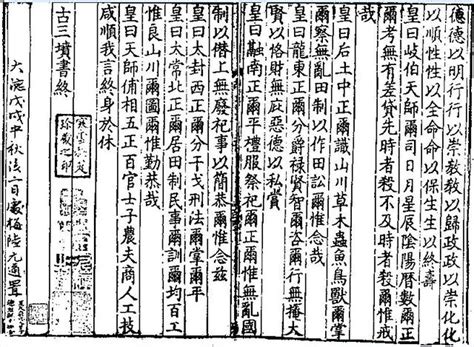 德德以明行行以崇教教以歸政政以崇化化
以順性性以全命命以保生生以終壽
皇曰岐伯天師爾司日月星辰陰陽曆數爾正
爾考無有差貸先時者殺不及時者殺爾惟戒
哉
皇曰后土中正爾識山川草木蟲魚鳥獸爾掌
爾察無亂田制以作田訟爾惟念哉
皇曰龍東正爾分爵祿賢智爾咨爾行無掩大
賢以悋財無庇惡德以私賞
皇曰融南正爾禮服祭祀爾正爾惟無亂國
制以僭上無廢祀事以簡恭爾惟念茲
皇曰太封西正爾分干戈刑法爾掌爾平
皇曰太常北正爾居田制民事爾訓爾均百工
惟良山川爾圖爾惟勤恭哉
皇曰天師俌相五正百官士子農夫商人工技
咸順我言終身於休
古三墳書終
戊戌中秋法一百處梅陸元通置